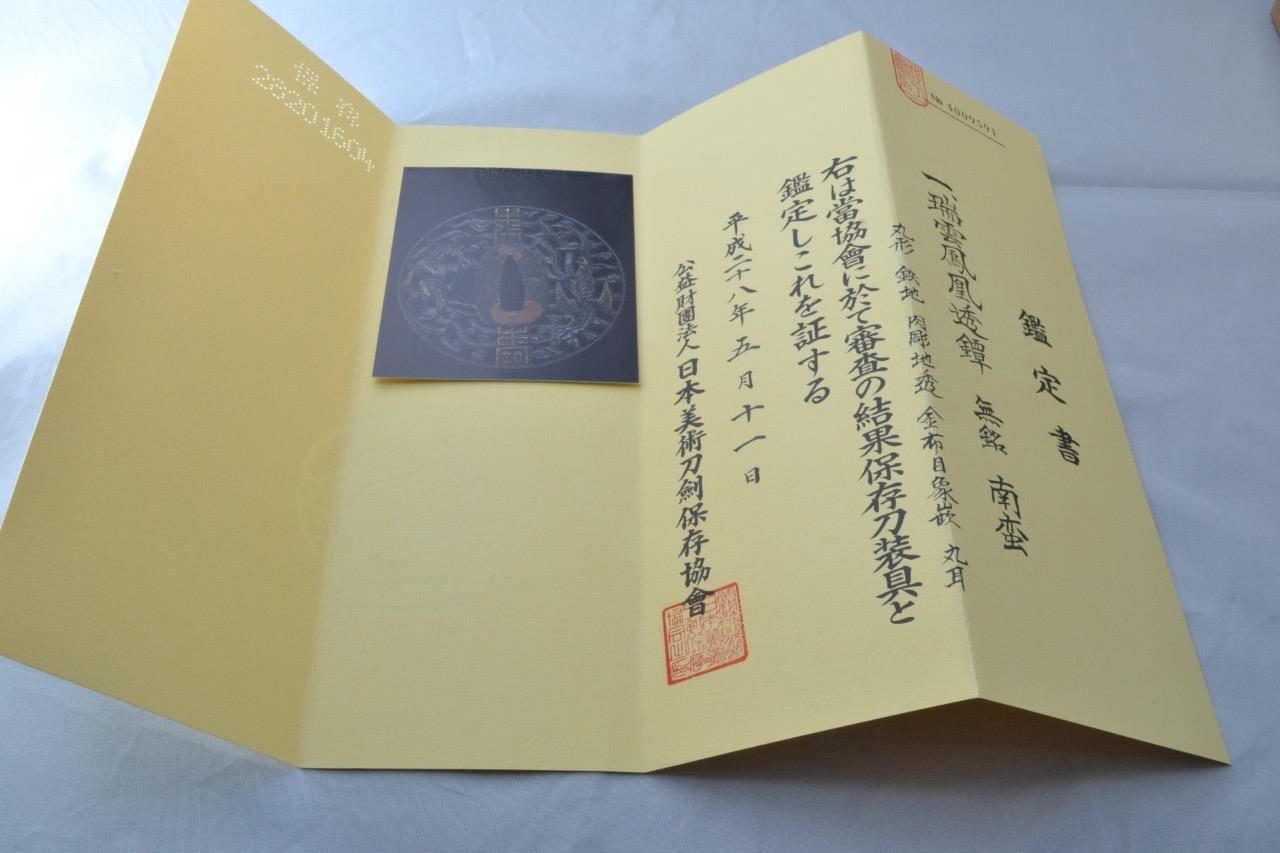 鑑定書
№ 4009591
一、瑞雲鳳凰透鐔 無銘 南蛮
丸形 鉄地 肉彫地透 金布目象嵌 丸耳
右は當協會に於て審査の結果保存刀装具と
鑑定しこれを証する
平成二十八年五月十一日
公益財團法人日本美術刀劍保存協會
28201604